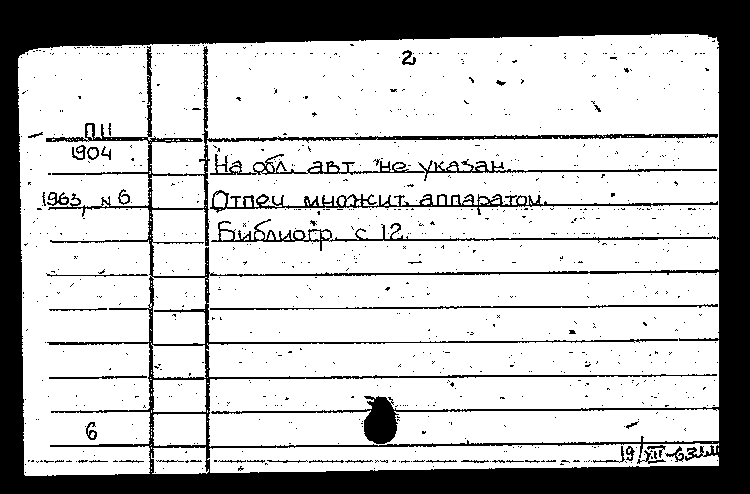 2
П11
1904
На обл. авт не указан.
1963, N 6
Отпеч множит. аппаратом.
Библиогр. с 12.
6
19/XII-63